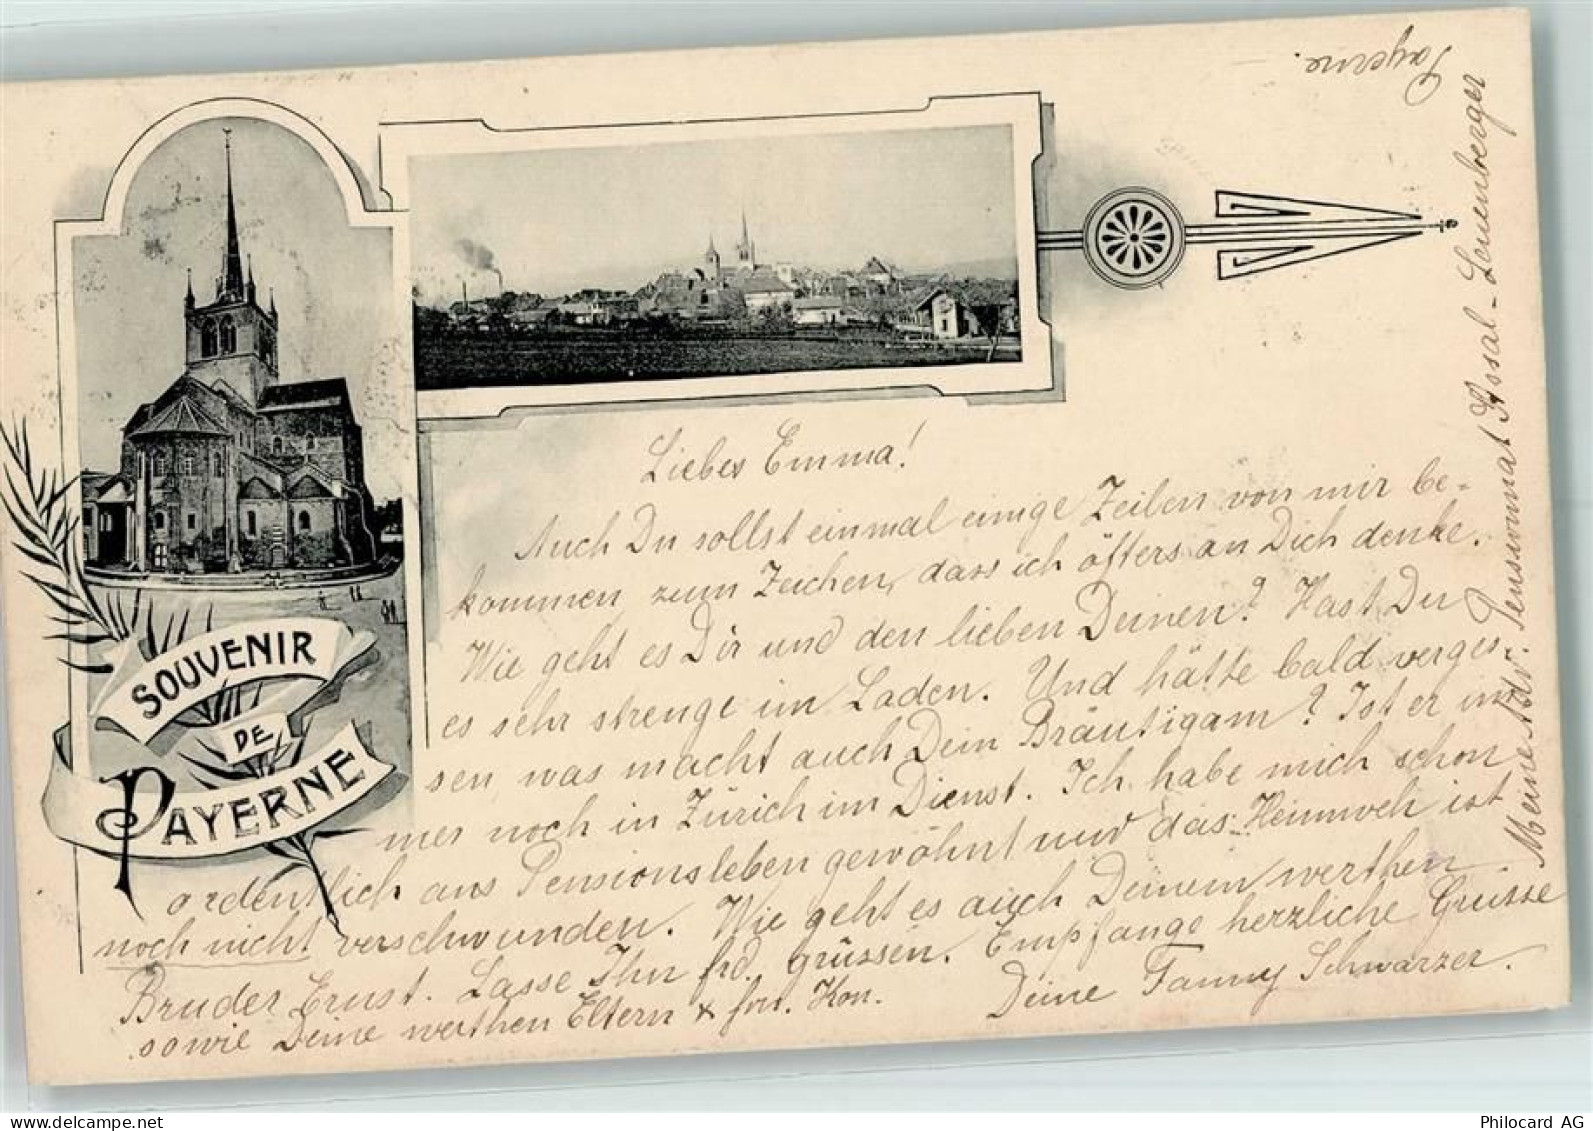 SOUVENIR
DE
PAYERNE
Liebes Emma!
Auch Du sollst einmal einige Zeilen von mir be-
kommen zum Zeichen, dass ich öfters an Dich denke.
Wie geht es Dir und den lieben Deinen? Hast Du
es sehr strenge im Laden. Und hätte bald verges-
sen, was macht auch Dein Bräutigam? Ist er im
mer noch in Zürich im Dienst. Ich habe mich schon
ordentlich ans Pensionsleben gewöhnt und das Heimweh ist
noch nicht verschwunden. Wie geht es auch Deinem werthen
Bruder Ernst. Lasse Ihn frd. grüssen. Empfange herzliche Grüsse
sowie Deine werthen Eltern & Deine Fanny Schwarzer.
Meine Adr. Pensionnat Leuenberger
Payerne.
Philocard AG